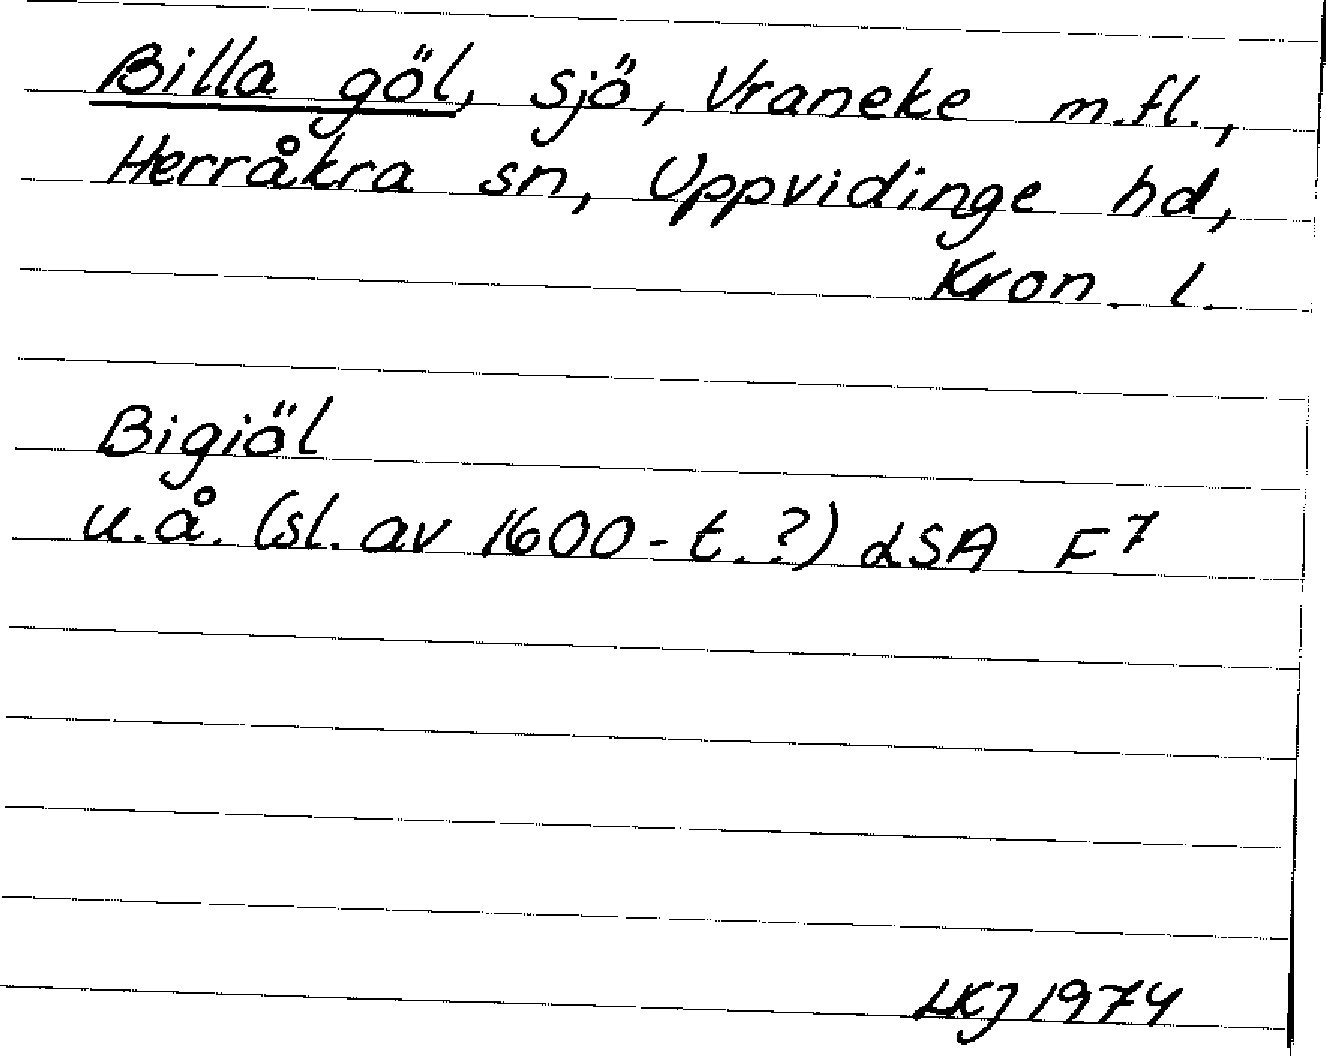 Billa göl, sjö, Vraneke m.fl.,
Herråkra sn, Uppvidinge hd,
Kron. l.
Bigiöl
u.å. (sl. av 1600-t.?) LSA F7
LKJ 1974